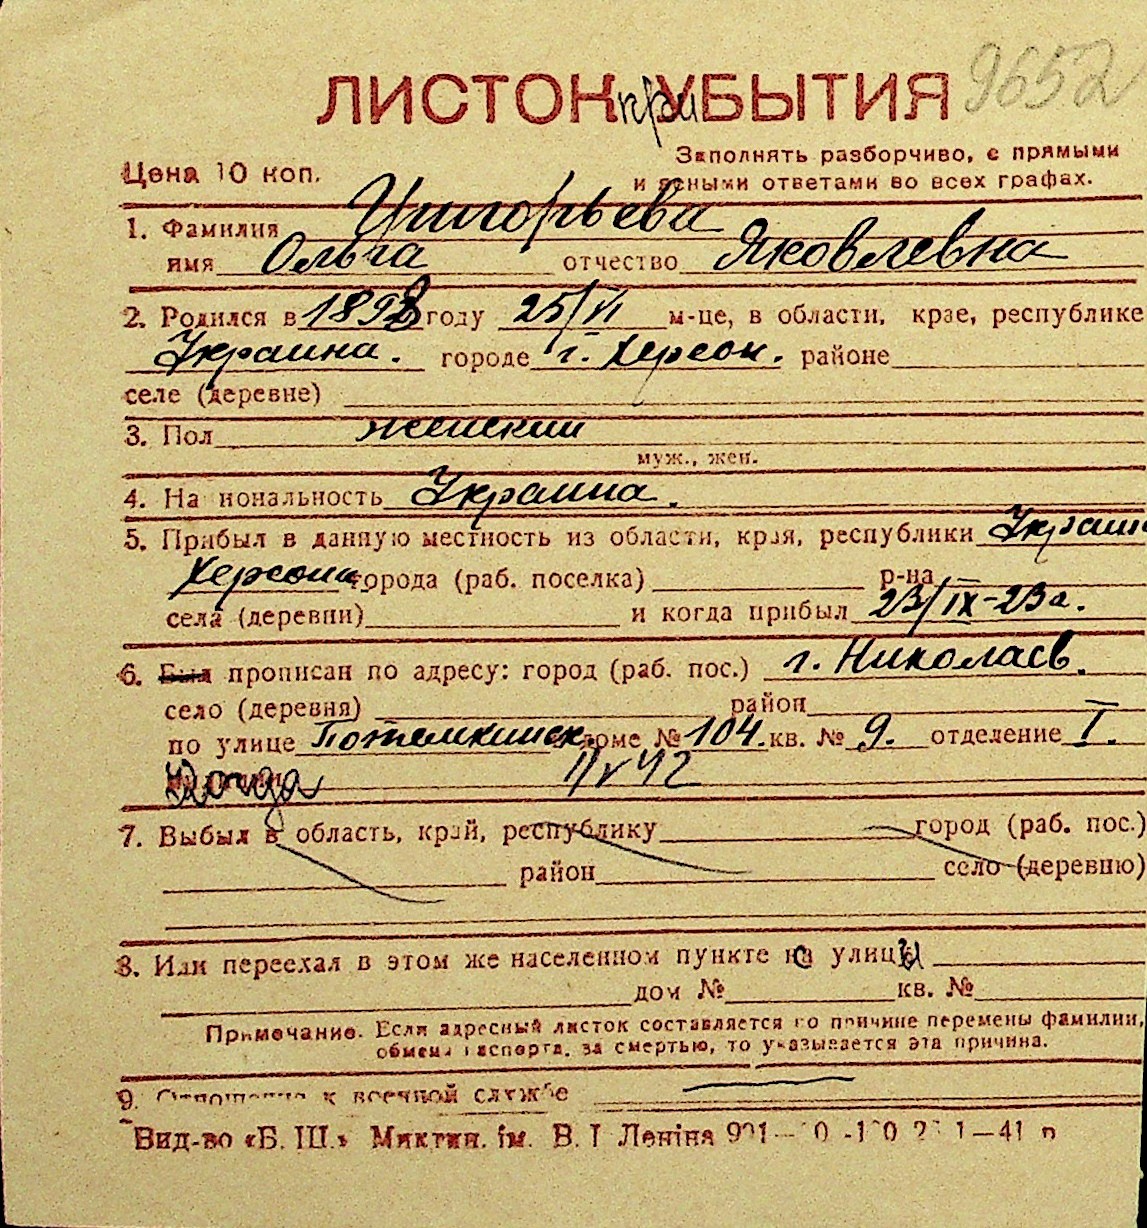 9652
ЛИСТОК при УБЫТИЯ
Заполнять разборчиво, с прямыми
Цена 10 коп.
и ясными ответами во всех графах.
1. Фамилия Григорьева
имя Ольга отчество Яковлевна
2. Родился в 1898 году 25/VI м-це, в области, крае, республике
Украина. городе г. Херсон. районе
селе (деревне)
3. Пол женский
муж., жен.
4. Национальность Украина.
5. Прибыл в данную местность из области, края, республики Украин
Херсона города (раб. поселка) р-на
села (деревни) и когда прибыл 23/IX-23г.
6. Был прописан по адресу: город (раб. пос.) г. Николаев.
село (деревня) район
по улице Потемкинск. доме № 104. кв. № 9. отделение I.
7. Выбыл в область, край, республику город (раб. пос.)
район село (деревню)
8. Или переехал в этом же населенном пункте на улицы
дом № кв. №
Примечание. Если адресный листок составляется по причине перемены фамилии,
обмена паспорта, за смертью, то указывается эта причина.
9. Отношение к военной службе
Вид-во «Б. Ш.» Миктип. ім. В. І Леніна